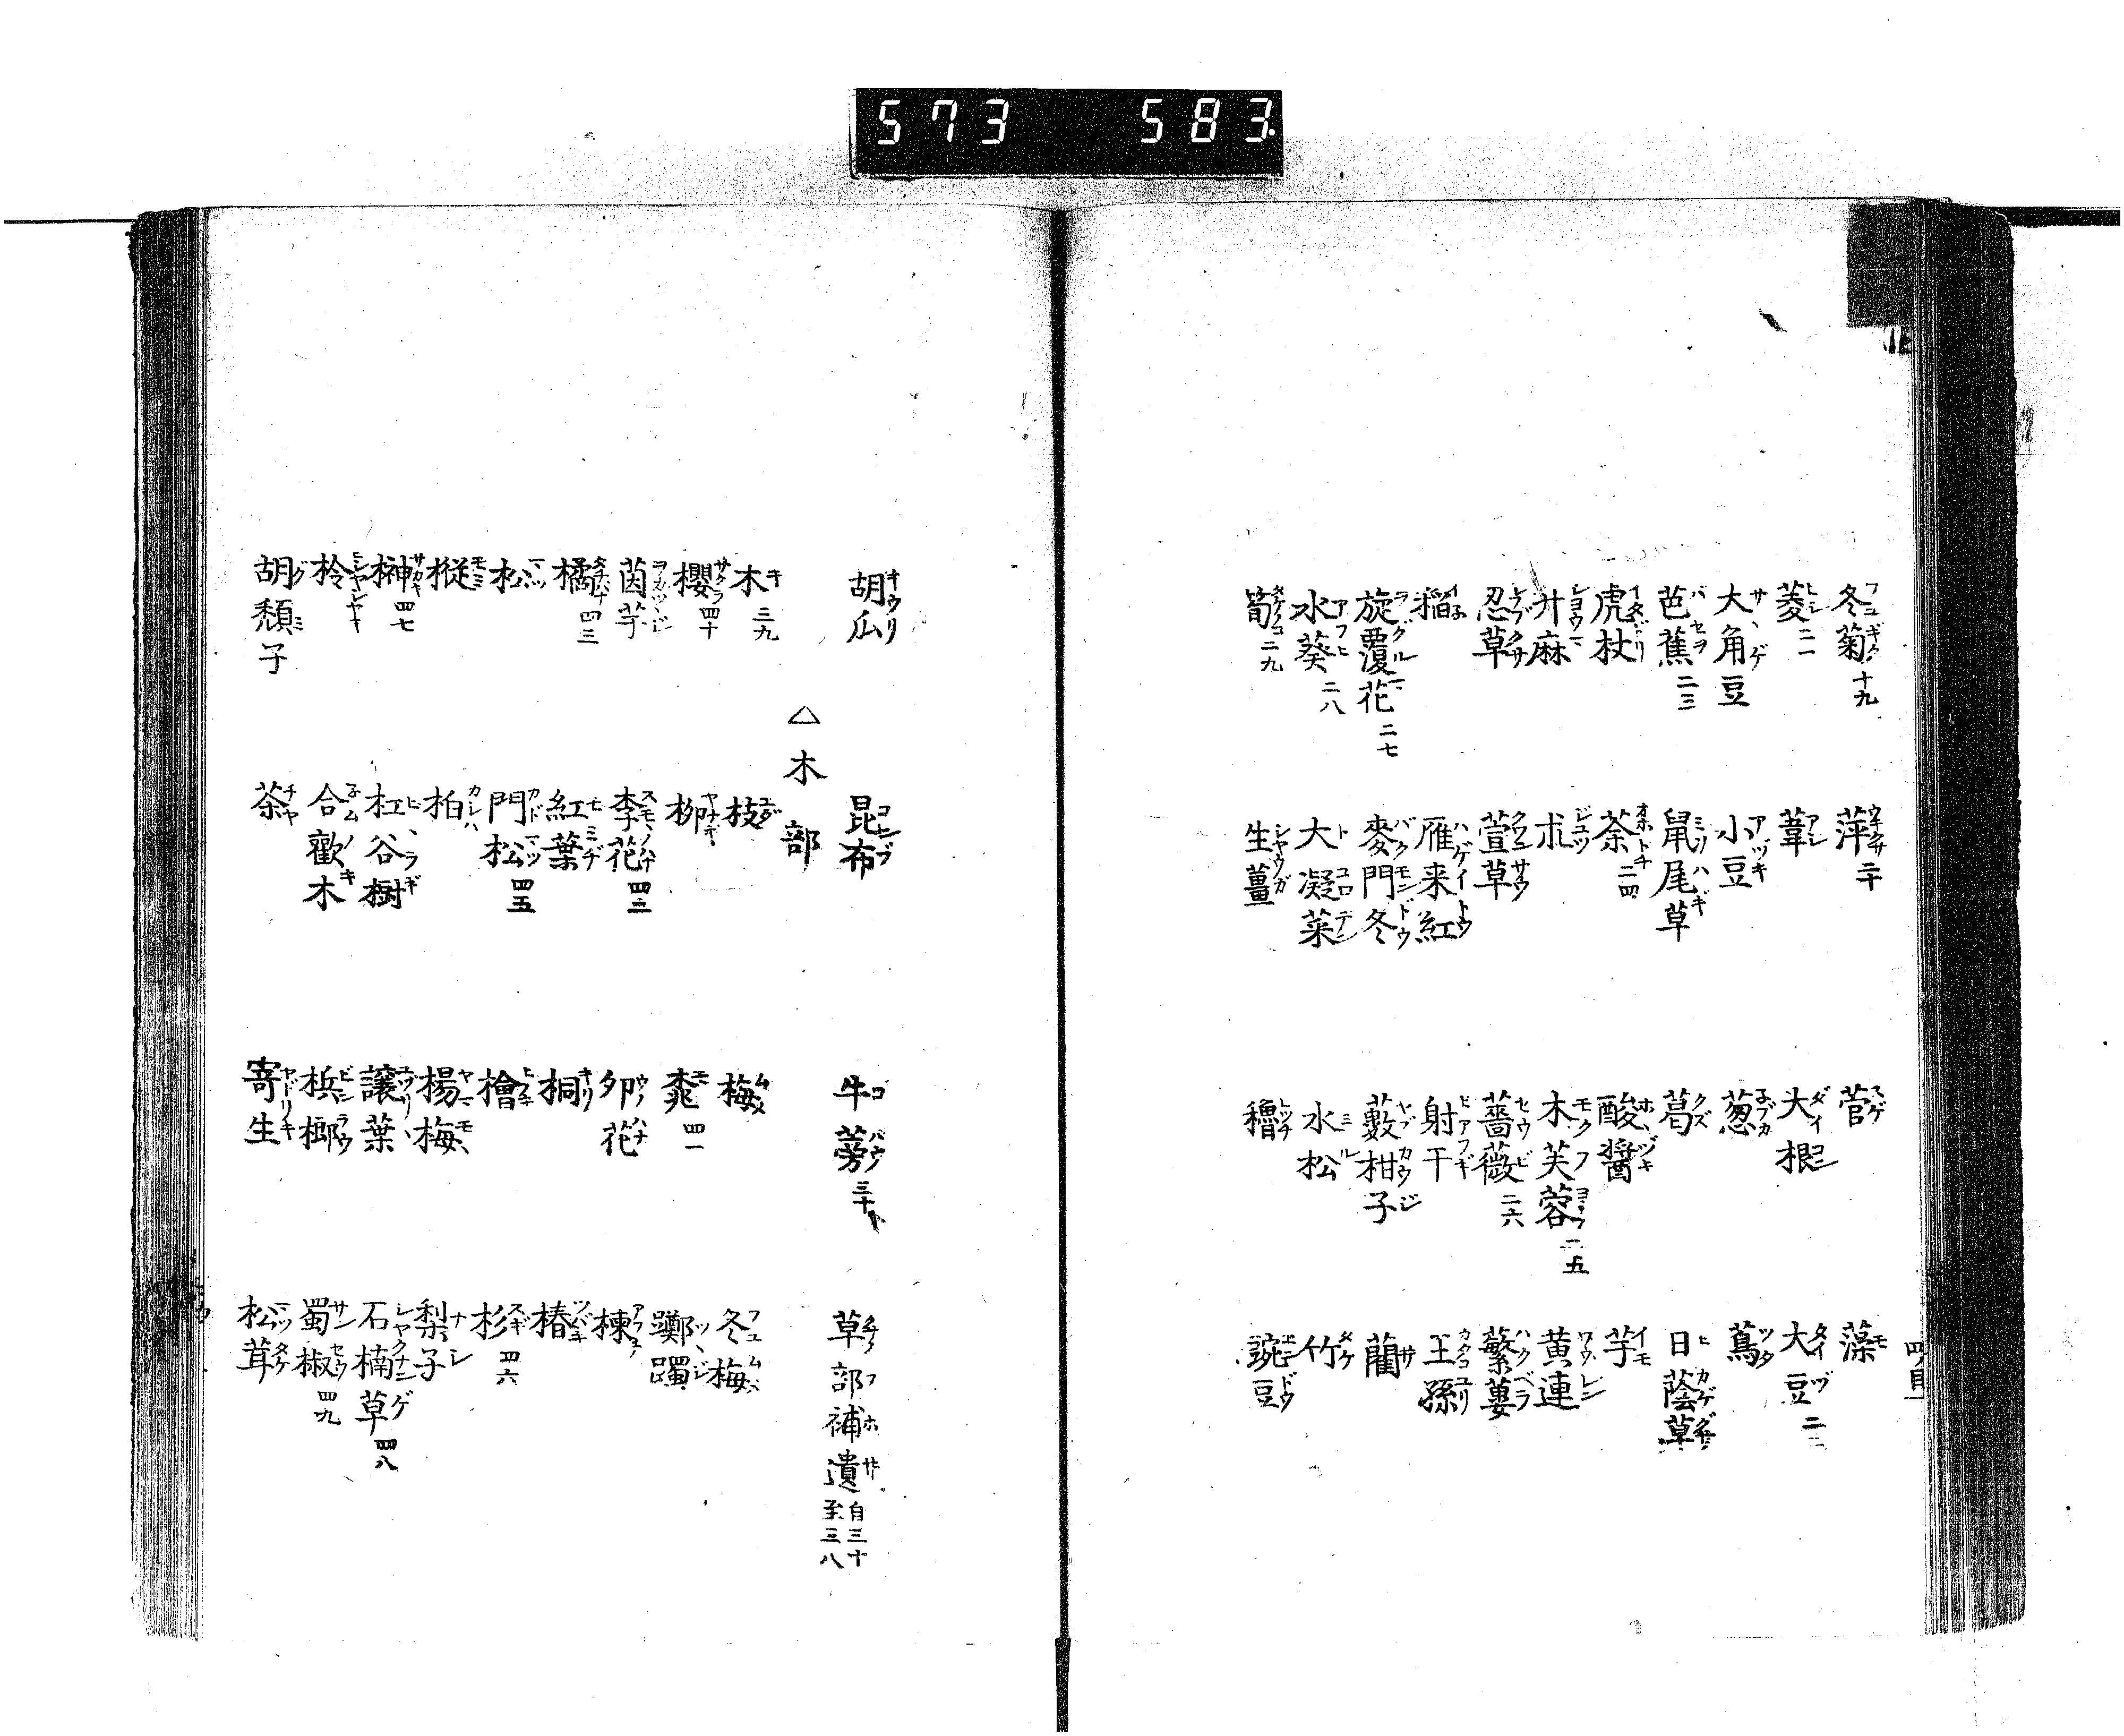 573 583
冬菊十九 萍二十 菅 藻
菱二一 葦 大根 大豆二二
大角豆 小豆 葱 蔦
芭蕉二三 鼠尾草 葛 日蔭草
虎杖 荼二四 酸醬 芋
升麻 朮 木芙蓉二五 黄連
忍草 萱草 薔薇二六 繁蔞
稲 雁来紅 射干 王孫
旋覆花二七 麥門冬 藪柑子 藺
水葵二八 大凝菜 水松 竹
筍二九 生薑 穭 豌豆
胡瓜 昆布 牛蒡三十 草部補遺自三十至三八
△木部
木三九 枝 梅 冬梅
櫻四十 柳 桃四一 躑躅
茵芋 李花四三 卯花 楝
橘四三 紅葉 桐 椿
松 門松四五 檜 杉四六
樅 柏 楊梅 梨子
榊四七 杠谷樹 讓葉 石楠草四八
柃 合歡木 梹榔 蜀椒四九
胡頽子 茶 寄生 松茸